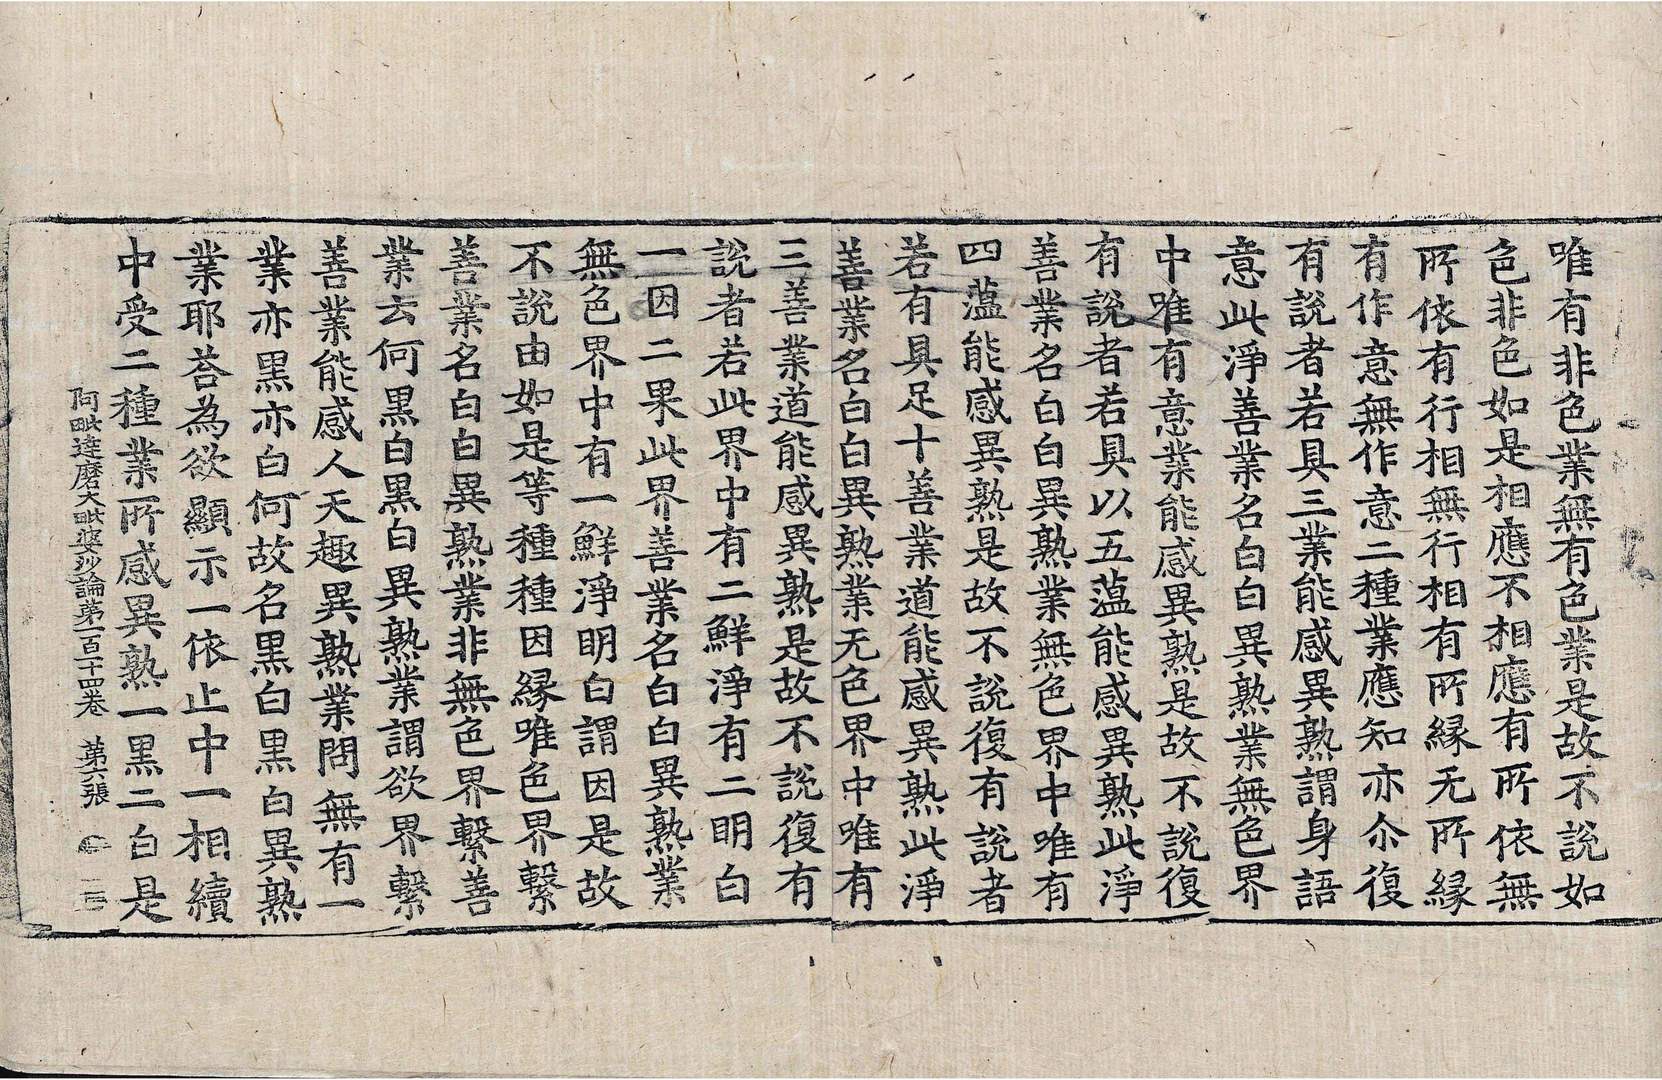 唯有非色業無有色業是故不說如
色非色如是相應不相應有所依無
所依有行相無行相有所縁无所縁
有作意無作意二種業應知亦尒復
有說者若具三業能感異熟謂身語
意此淨善業名白白異熟業無色界
中唯有意業能感異熟是故不說復
有說者若具以五薀能感異熟此淨
善業名白白異熟業無色界中唯有
四薀能感異熟是故不說復有說者
若有具足十善業道能感異熟此淨
善業名白白異熟業无色界中唯有
三善業道能感異熟是故不說復有
說者若此界中有二鮮淨有二明白
一因二果此界善業名白白異熟業
無色界中有一鮮淨明白謂因是故
不說由如是等種種因縁唯色界繫
善業名白白異熟業非無色界繫善
業云何黑白黑白異熟業謂欲界繫
善業能感人天趣異熟業問無有一
業亦黑亦白何故名黑白黑白異熟
業耶荅為欲顯示一依止中一相續
中受二種業所感異熟一黑二白是
阿毗達磨大毗婆沙論第一百一十四卷 第六張